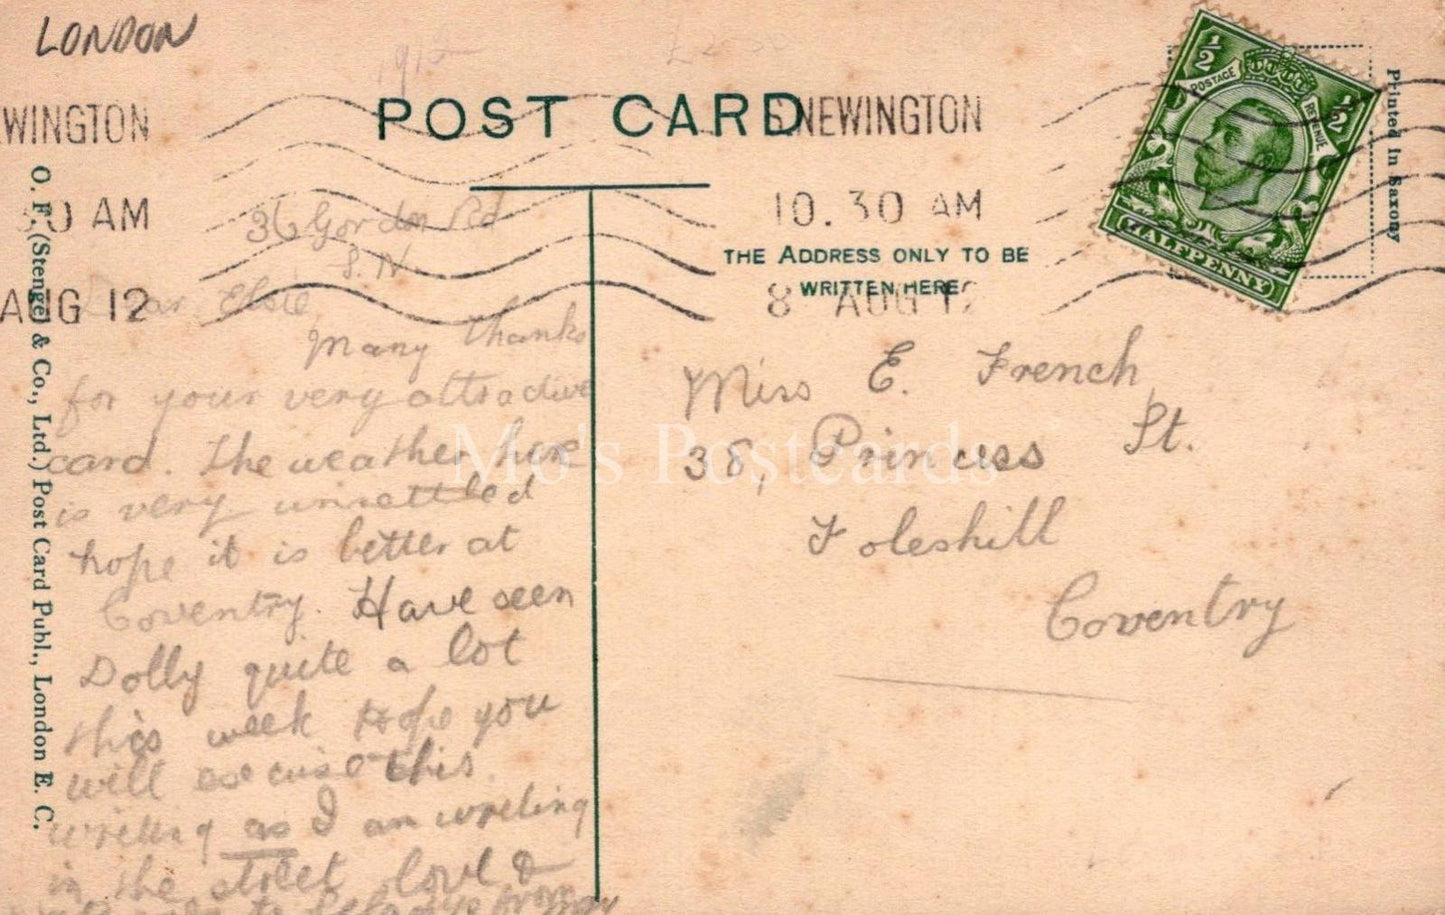 LONDON
1912
POST CARD
WINGTON
30 AM
AUG 12
S NEWINGTON
10.30 AM
8 AUG 12
½
½
POSTAGE
REVENUE
HALFPENNY
Printed in Saxony
O. F. (Stengel & Co., Ltd.) Post Card Publ., London E. C.
THE ADDRESS ONLY TO BE
WRITTEN HERE
36 Gordon Rd
S. N
Dear Elsie,
Many thanks
for your very attractive
card. The weather here
is very unsettled
hope it is better at
Coventry. Have seen
Dolly quite a lot
this week Hope you
will excuse this
writing as I am writing
in the street love &
to all from
May
Miss E. French
38, Princess St.
Foleshill
Coventry
Mo's Postcards